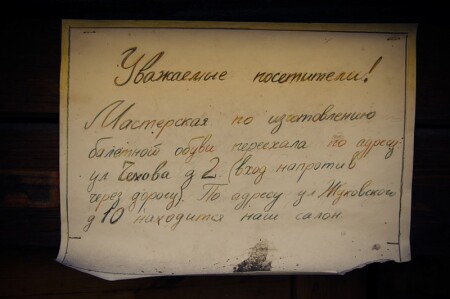 Уважаемые посетители!
Мастерская по изготовлению
балетной обуви переехала по адресу:
ул Чехова д 2. (вход напротив
через дорогу). По адресу ул Жуковского
д 10 находится наш салон.